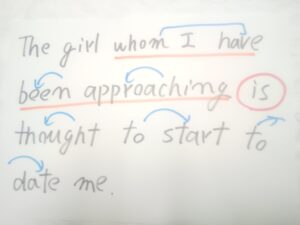 The girl whom I have
been approaching is
thought to start to
date me.